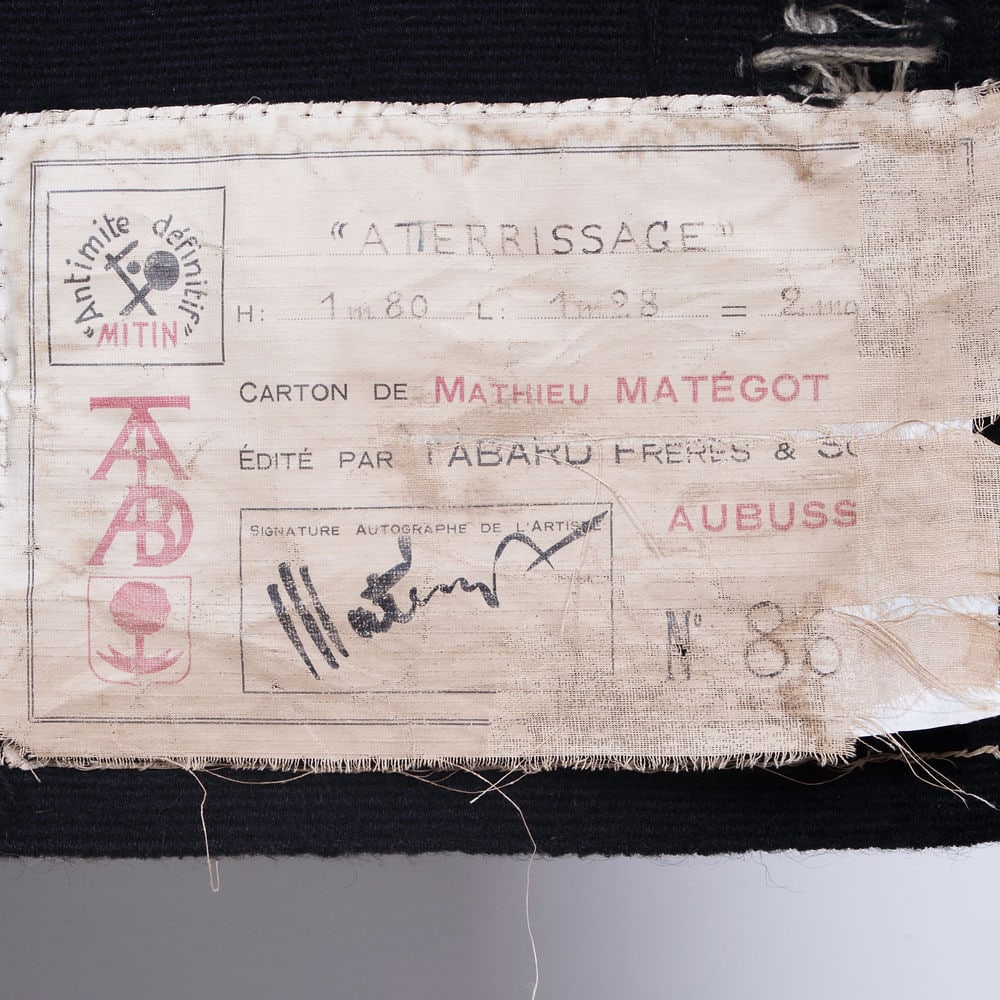 "Antimite définitif"
MITIN
"ATTERRISSAGE"
H: 1m80 L: 1m28 =
CARTON DE MATHIEU MATÉGOT
ÉDITÉ PAR TABARD FRÈRES &
AUBUSS
SIGNATURE AUTOGRAPHE DE L'ARTISTE
Matégot
N° 86
TABARD